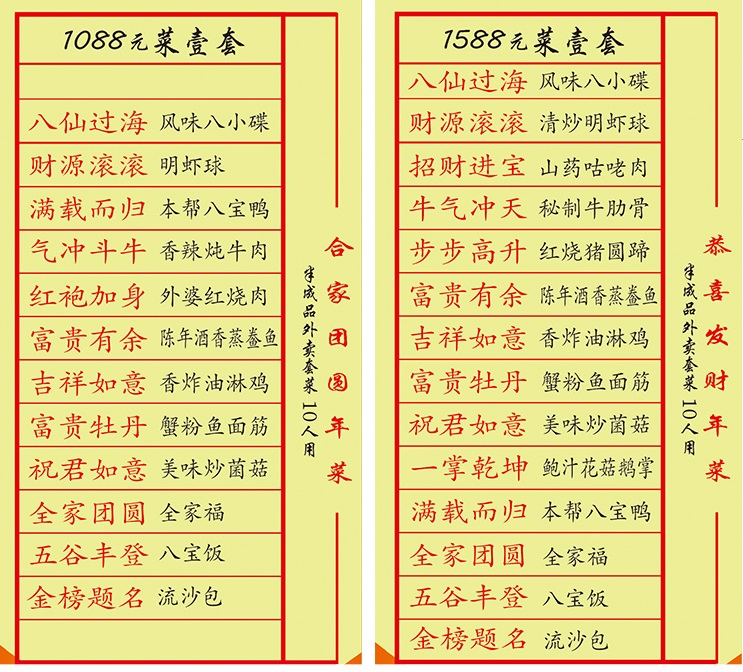 1088元菜壹套
八仙过海 风味八小碟
财源滚滚 明虾球
满载而归 本帮八宝鸭
气冲斗牛 香辣炖牛肉
红袍加身 外婆红烧肉
富贵有余 陈年酒香蒸鲞鱼
吉祥如意 香炸油淋鸡
富贵牡丹 蟹粉鱼面筋
祝君如意 美味炒菌菇
全家团圆 全家福
五谷丰登 八宝饭
金榜题名 流沙包
半成品外卖套菜10人用
合家团圆年菜
1588元菜壹套
八仙过海 风味八小碟
财源滚滚 清炒明虾球
招财进宝 山药咕咾肉
牛气冲天 秘制牛肋骨
步步高升 红烧猪圆蹄
富贵有余 陈年酒香蒸鲞鱼
吉祥如意 香炸油淋鸡
富贵牡丹 蟹粉鱼面筋
祝君如意 美味炒菌菇
一掌乾坤 鲍汁花菇鹅掌
满载而归 本帮八宝鸭
全家团圆 全家福
五谷丰登 八宝饭
金榜题名 流沙包
半成品外卖套菜10人用
恭喜发财年菜